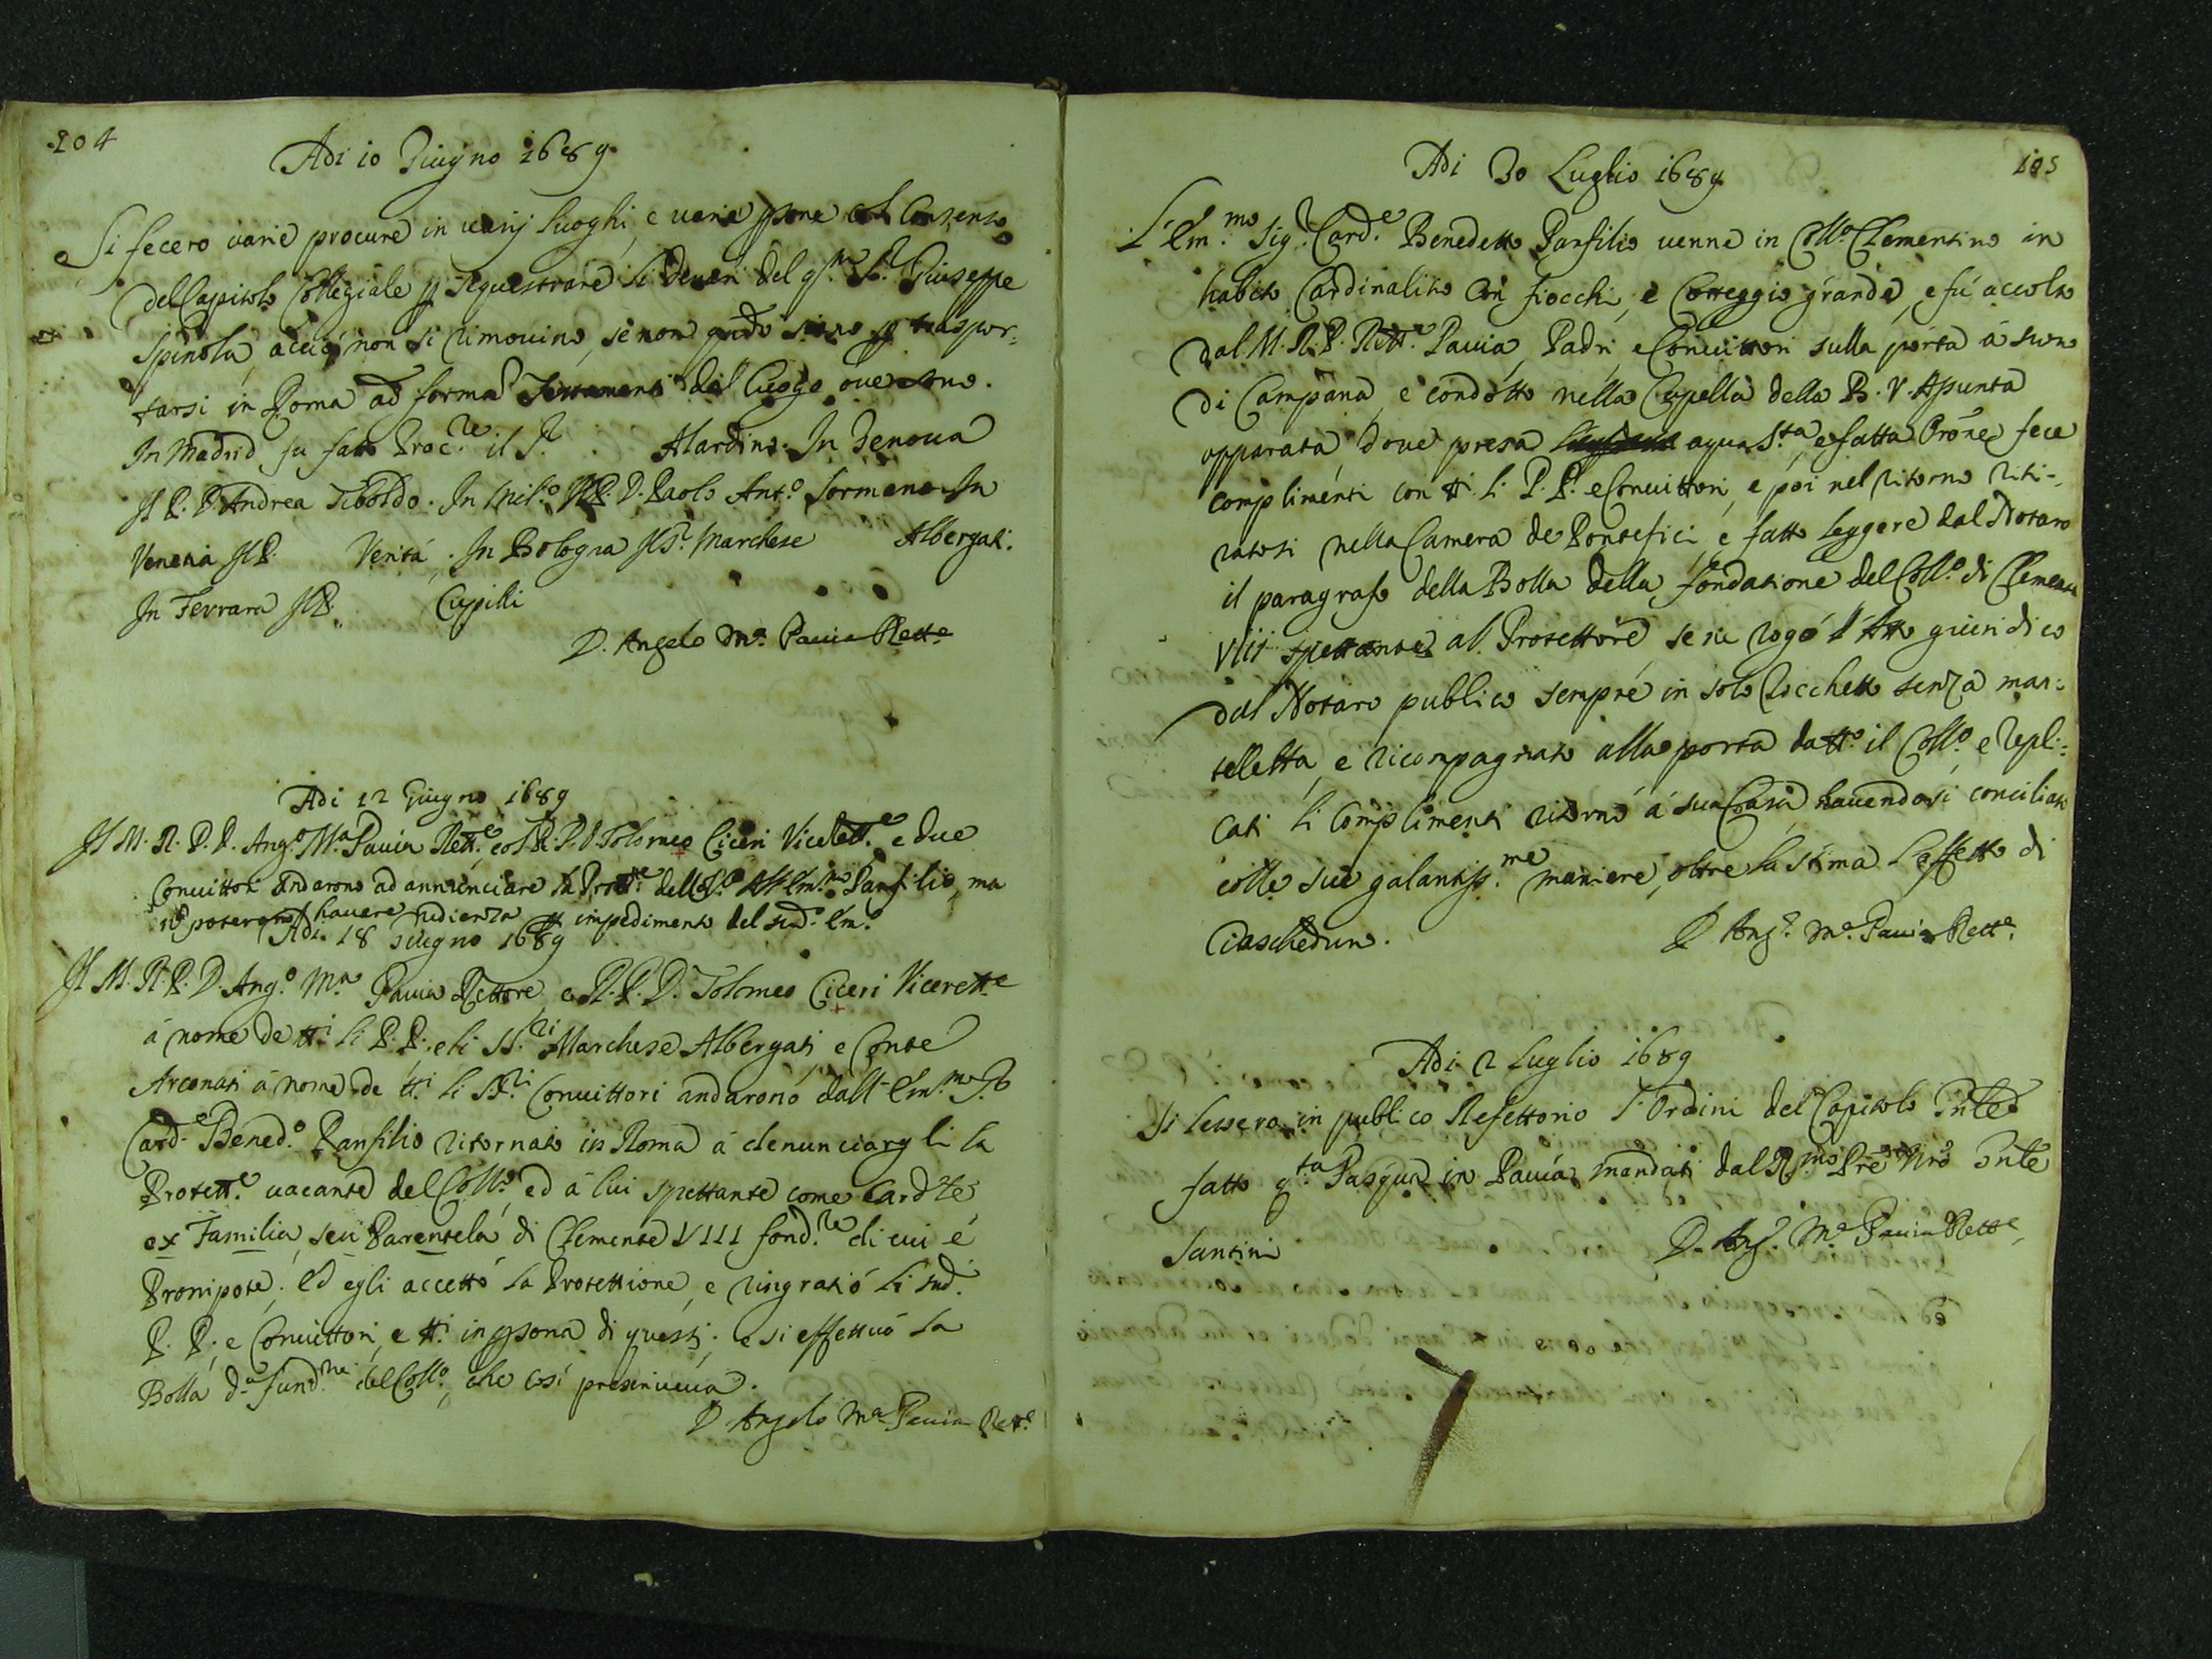 104
Adi 10 Giugno 1689
Si fecero varie procure in varij luoghi, e varie psone col Consenso
del Capitolo Collegiale p sequestrare li denari del qm Sr. Giuseppe
Spinola, acciò non si rimovino, se non qndo siano p traspor:
tarsi in Roma ad forma del luogo ove sono.
In Madrid fu fatto Proc.re il Sr. Alardino. In Genova
Il P. D. Andrea Tiboldo. In Mil.o Il P. D. Paolo Ant.o Sormano. In
Venetia Il P. Verità. In Bologna Il Sr. Marchese Albergati.
In Ferrara Il P. Cupilli
D. Angelo Ma. Pavia Rett.e
Adi 12 Giugno 1689
Il M. R. P. D. Ang.o M.a Pavia Rett.e, col R. P. D. Tolomeo Ciceri Vicerett.e e due
Convittori andarono ad annunciare la Prott.ne del Coll.o All' Em.mo Panfilio, ma
nō poterono havere udienza p impedimento del sud.o Em.o
Adi 18 Giugno 1689
Il M. R. P. D. Ang.o M.a Pavia Rettore, e R. P. D. Tolomeo Ciceri Vicerett.e
à nome de tti li P. P. e li SS.ri Marchese Albergati, e Conte
Arconati à nome de tti li SS.ri Convittori andarono dall' Em.mo Sr
Card.e Bened.o Panfilio ritornato in Roma à denunciargli la
Protett.e vacante del Coll.o ed à lui spettante come Card.le
ex Familia, seu Parentela di Clemente VIII fond.re di cui é
Pronipote. Ed egli accettò la Protettione, e ringratiò li sud.
P. P. e Convittori, e tti in psona di questi. e si effettuò la
Bolla d.a fund.ne del Coll.o, che così prescriveva.
D. Angelo Ma Pavia Rett.e
105
Adi 30 Luglio 1689
L'Em.mo Sig.r Card.e Benedetto Panfilio venne in Coll.o Clementino in
habito Cardinalitio con fiocchi, e Corteggio grande, e fù accolto
dal M. R. P. Rett.e Pavia, Padri, e Convittori sulla porta à suono
di Campana, e condotto nella Capella della B. V. Assunta
apparata, dove presa aqua S.ta, e fatta Orōne, fece
complimenti con tti li P. P. e Convittori, e poi nel ritorno riti-
ratosi nella Camera de Pontefici, e fatto leggere dal Notaro
il paragrafo della Bolla della fondatione del Coll.o di Clemente
VIII spettante al Protettore se ne rogò l'Atto giuridico
dal Notaro publico sempre in solo Rocchetto senza man:
telletta, e ricompagnato alla porta da tt.o il Coll.o, e repli:
cati li Complimenti ritornò à sua Casa havendosi conciliato
colle sue galantiss.me maniere, oltre la stima l'affetto di
Ciaschedun.
D. Ang.o Ma. Pavia Rett.e
Adi 2 Luglio 1689
Si lessero in publico Refettorio l'Ordini del Capitolo Gnle
fatto q.ta Pasqua in Pavia mandati dal R.mo Pre Nro Gnle
Santini
D. Ang.o Ma. Pavia Rett.e